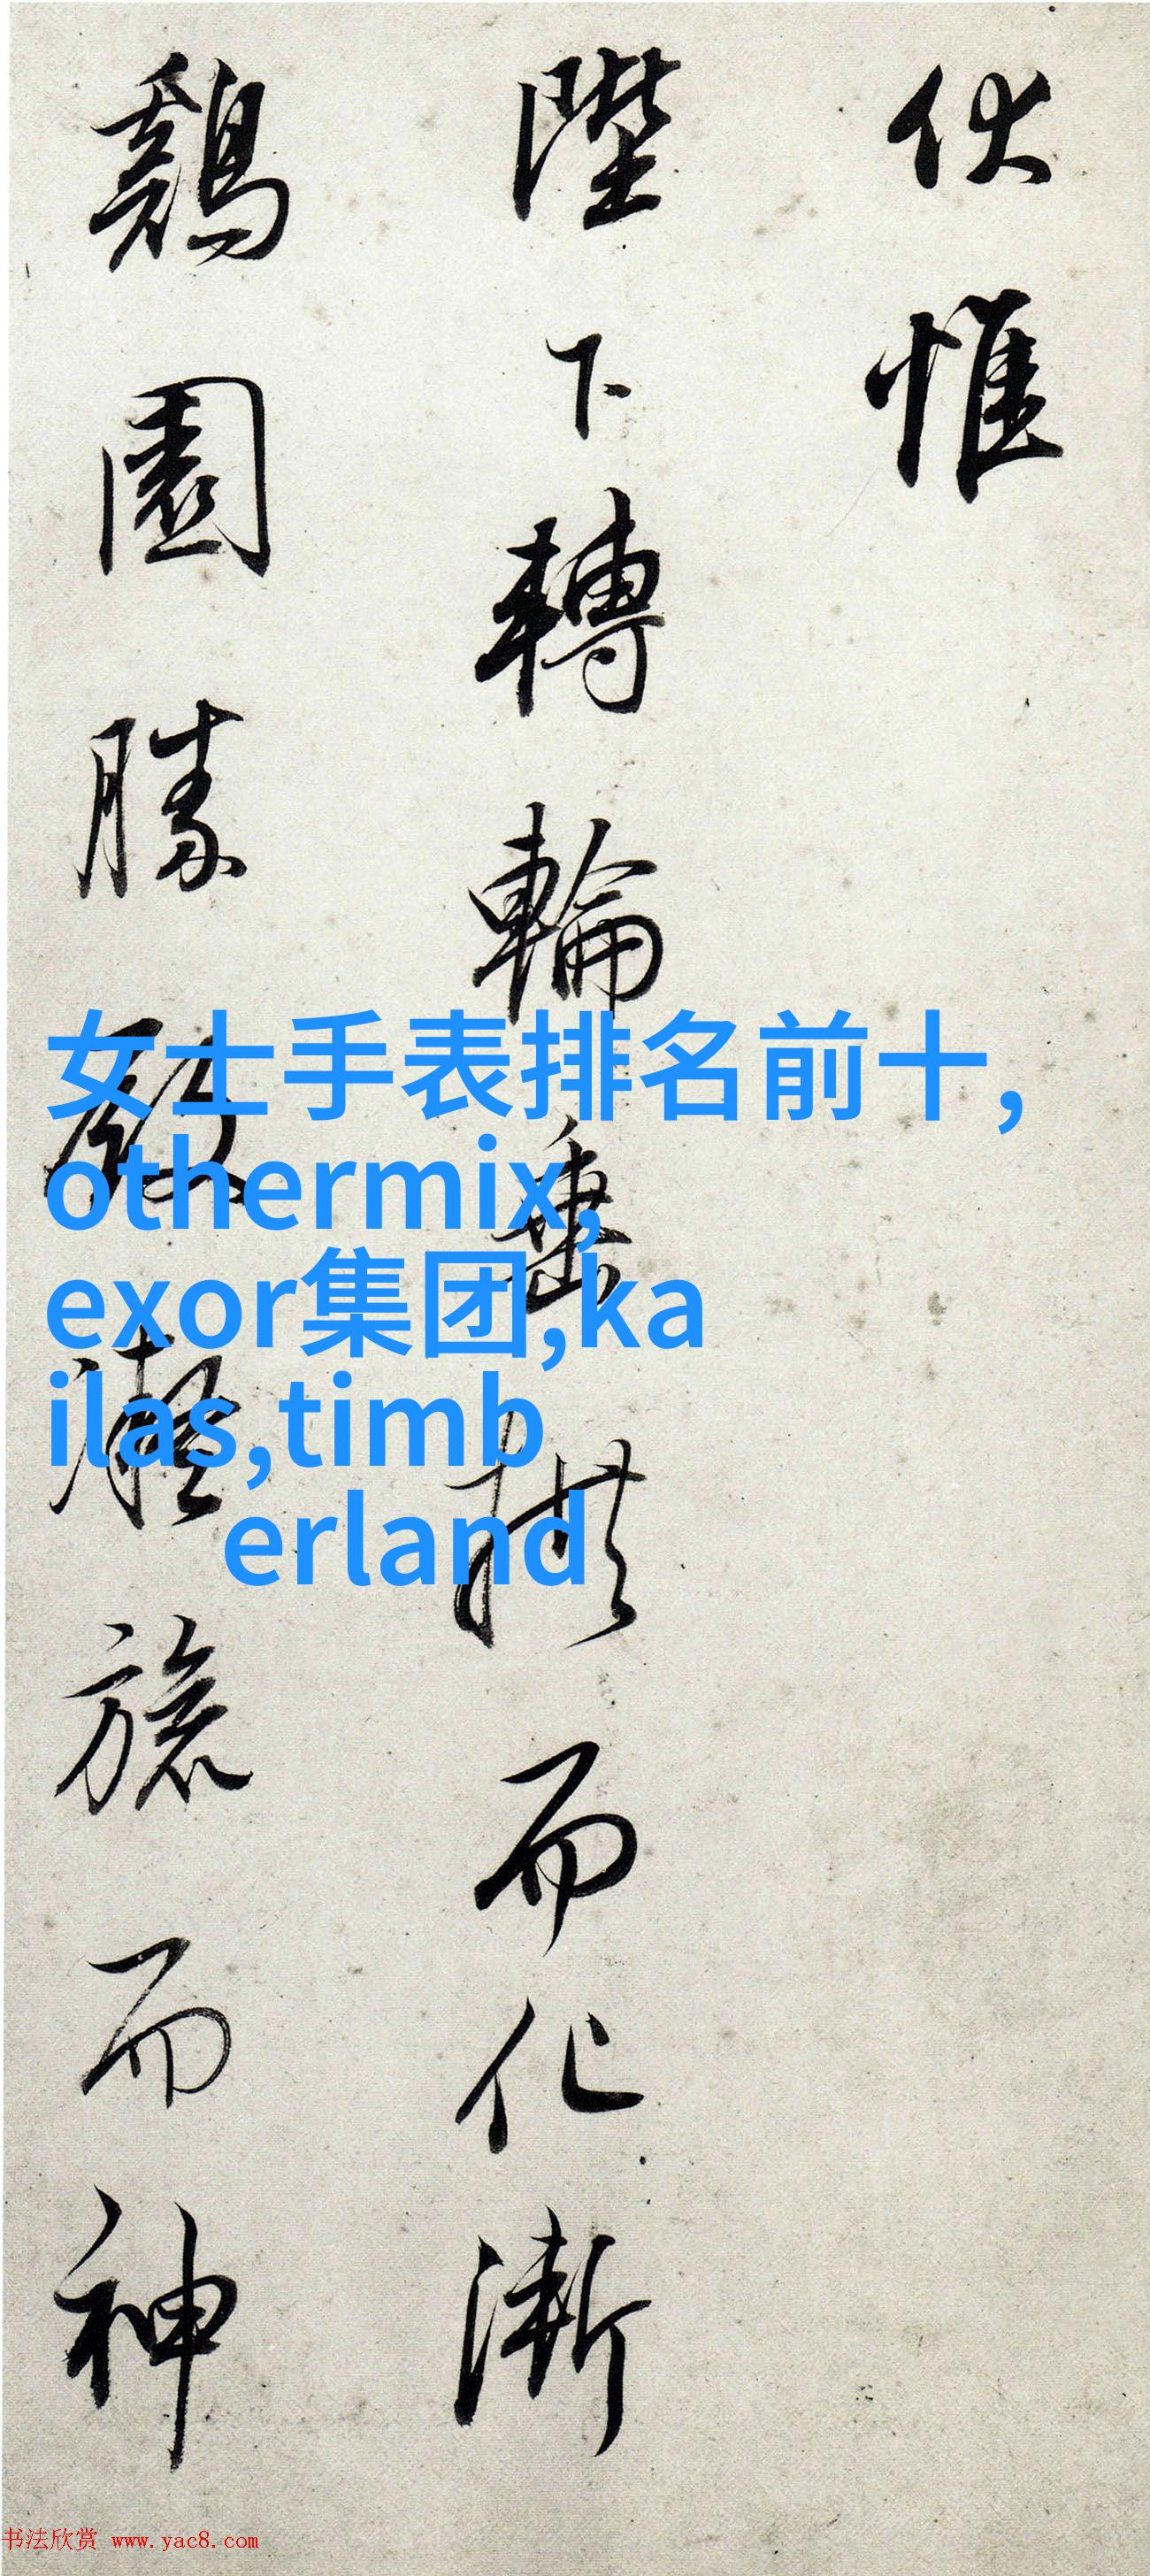 伏惟
陛下轉輪垂拱而化漸
鷄園勝殿凝旒而神
女士手表排名前十,
othermix,
exor集团,ka
ilas,timb
erland
书法欣赏 www.yac8.com